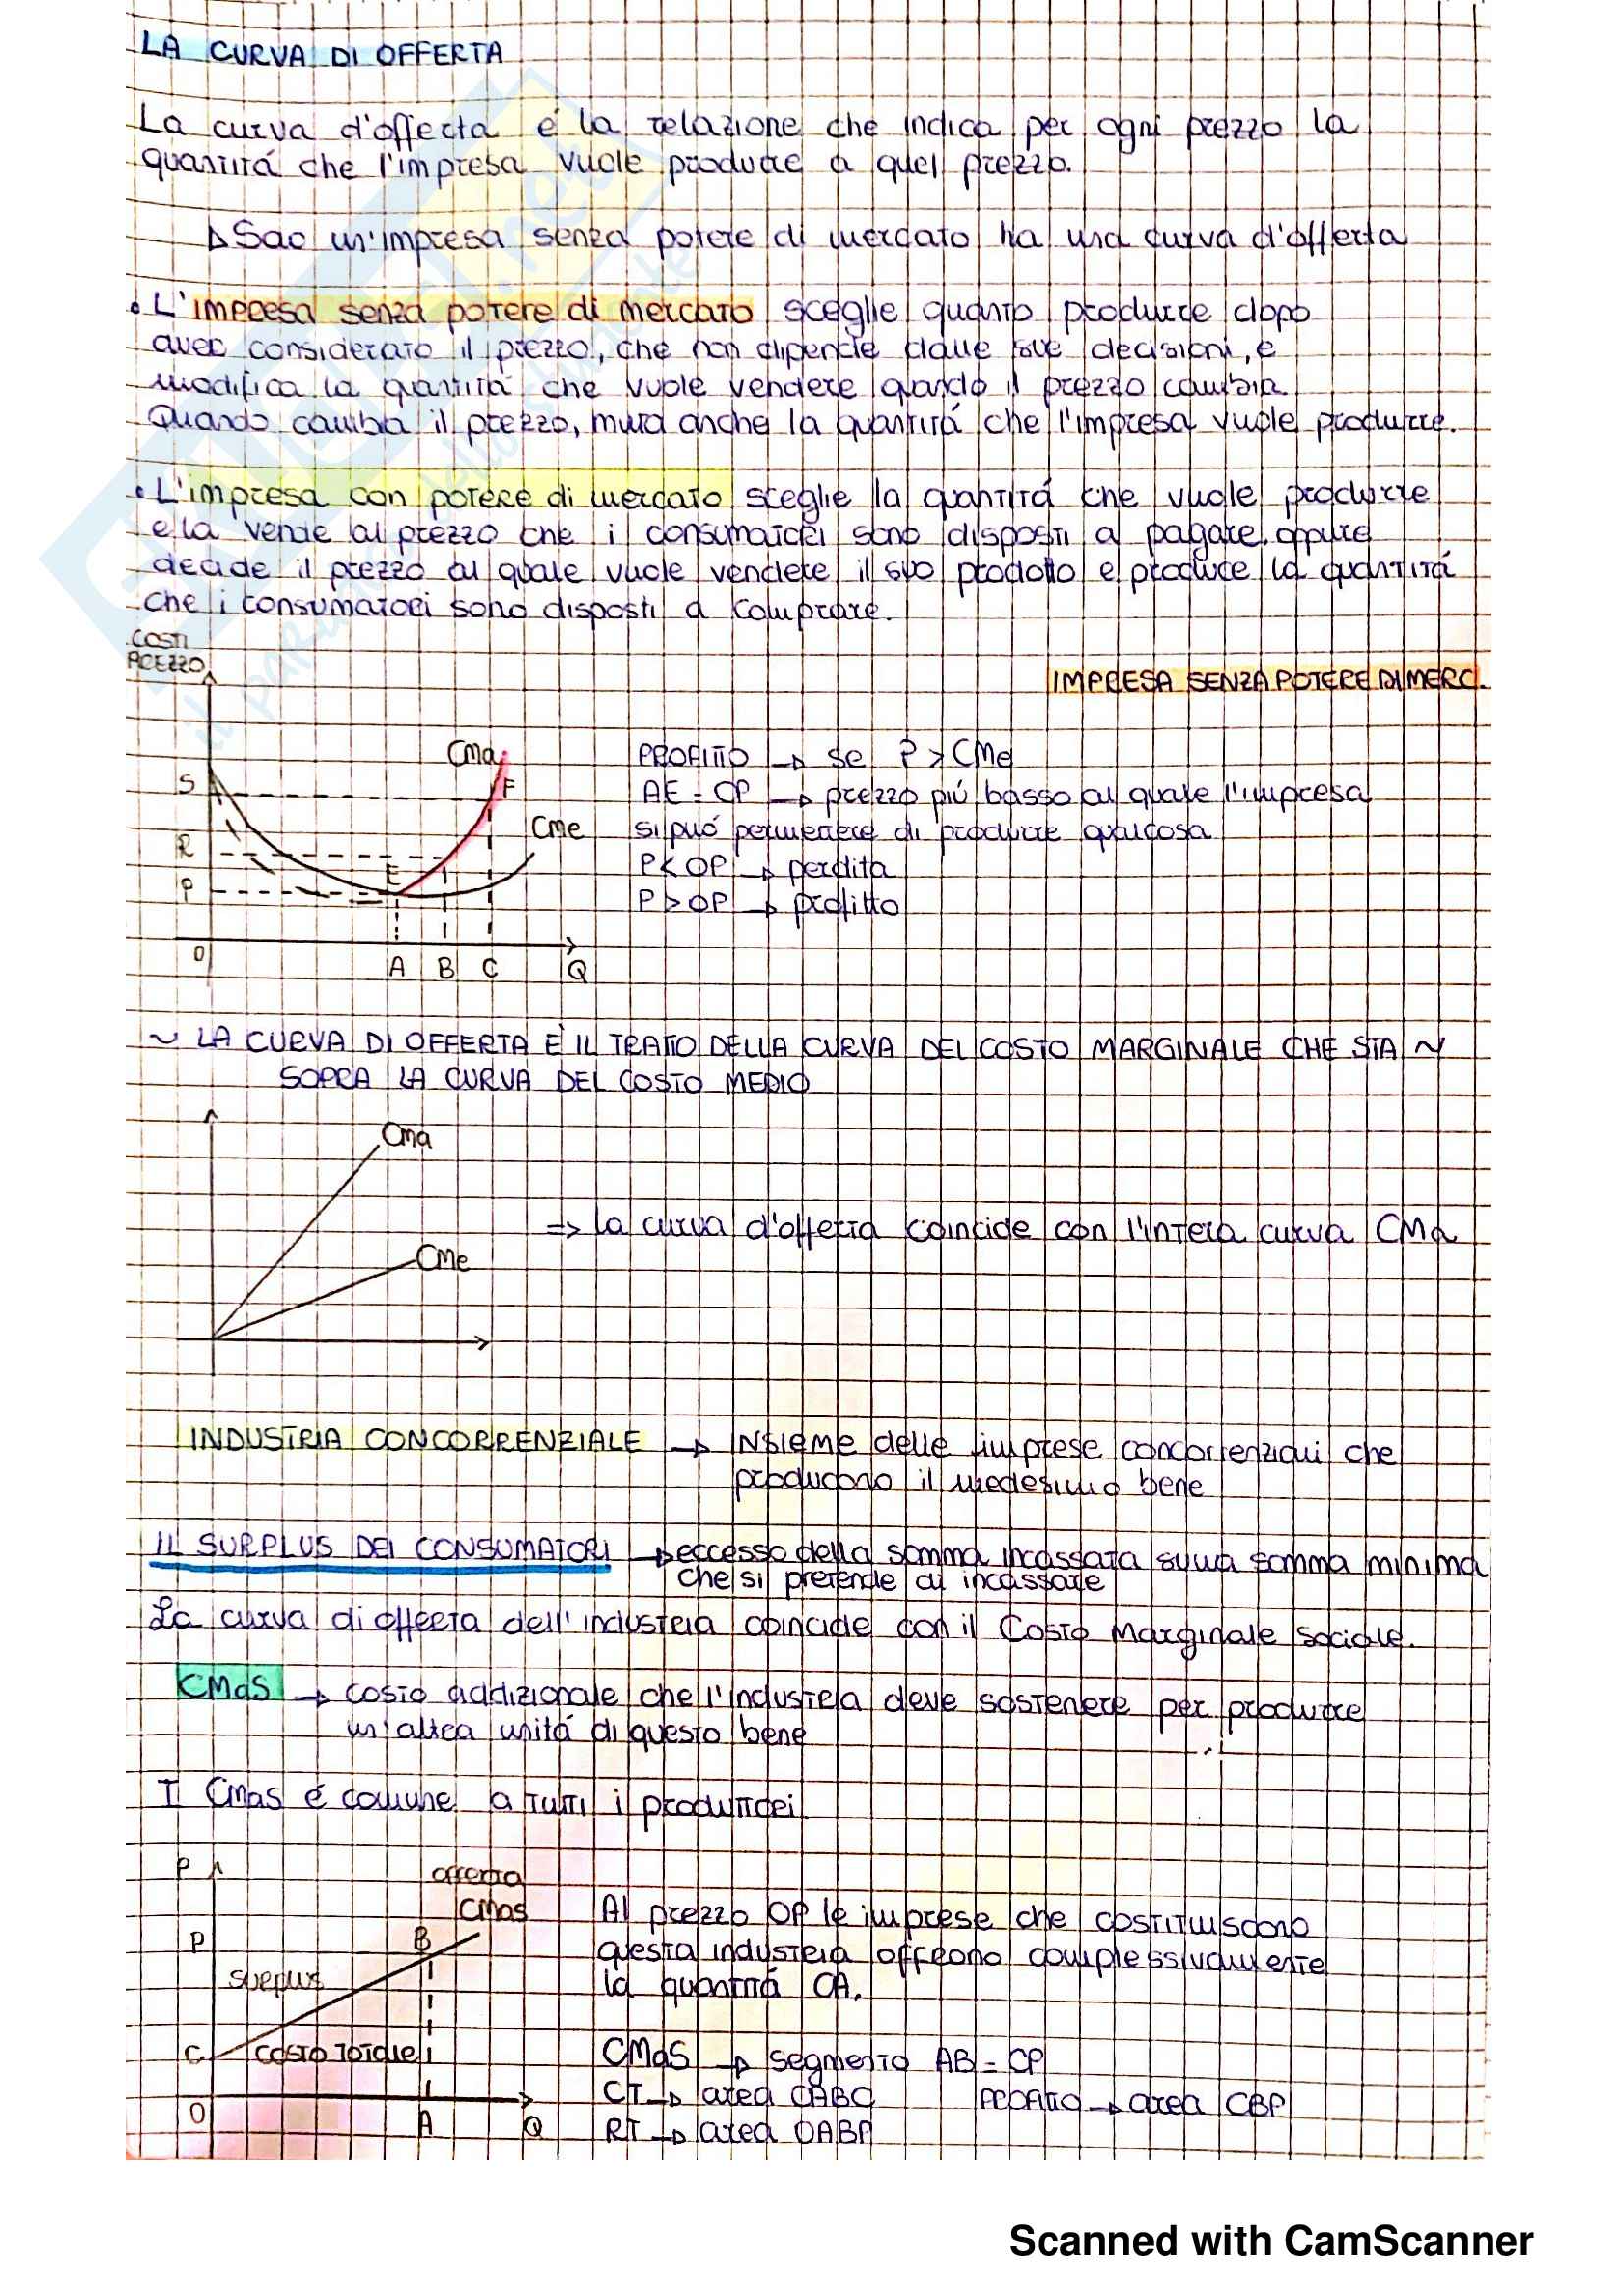 LA CURVA DI OFFERTA
La curva d'offerta é la relazione che indica per ogni prezzo la
quantitá che l'impresa vuole produrre a quel prezzo.
Solo un'impresa senza potere di mercato ha una curva d'offerta
• L'impresa senza potere di mercato sceglie quanto produrre dopo
aver considerato il prezzo, che non dipende dalle sue decisioni, e
modifica la quantitá che vuole vendere quando il prezzo cambia.
Quando cambia il prezzo, muta anche la quantitá che l'impresa vuole produrre.
• L'impresa con potere di mercato sceglie la quantitá che vuole produrre
e la vende al prezzo che i consumatori sono disposti a pagare, oppure
decide il prezzo al quale vuole vendere il suo prodotto e produce la quantitá
che i consumatori sono disposti a comprare.
COSTI
PREZZO
IMPRESA SENZA POTERE DI MERC.
CMa
S
F
CMe
R
E
P
O
A B C Q
PROFITTO → se P > CMe
AE = OP → prezzo piú basso al quale l'impresa
si puó permettere di produrre qualcosa
P < OP → perdita
P > OP → profitto
~ LA CURVA DI OFFERTA È IL TRATTO DELLA CURVA DEL COSTO MARGINALE CHE STA ~
SOPRA LA CURVA DEL COSTO MEDIO
CMa
CMe
=> la curva d'offerta coincide con l'intera curva CMa
INDUSTRIA CONCORRENZIALE → insieme delle imprese concorrenziali che
producono il medesimo bene
IL SURPLUS DEI CONSUMATORI → eccesso della somma incassata sulla somma minima
che si pretende di incassare
La curva di offerta dell'industria coincide con il Costo Marginale sociale.
CMaS → costo addizionale che l'industria deve sostenere per produrre
un'altra unitá di questo bene
I CMas é comune a tutti i produttori
P
offerta
CMas
P
B
surplus
C
costo totale
O
A
Q
Al prezzo OP le imprese che costituiscono
questa industria offrono complessivamente
la quantitá OA.
CMaS → segmento AB = OP
CT → area OABC PROFITTO → area CBP
RT → area OABP
Scanned with CamScanner